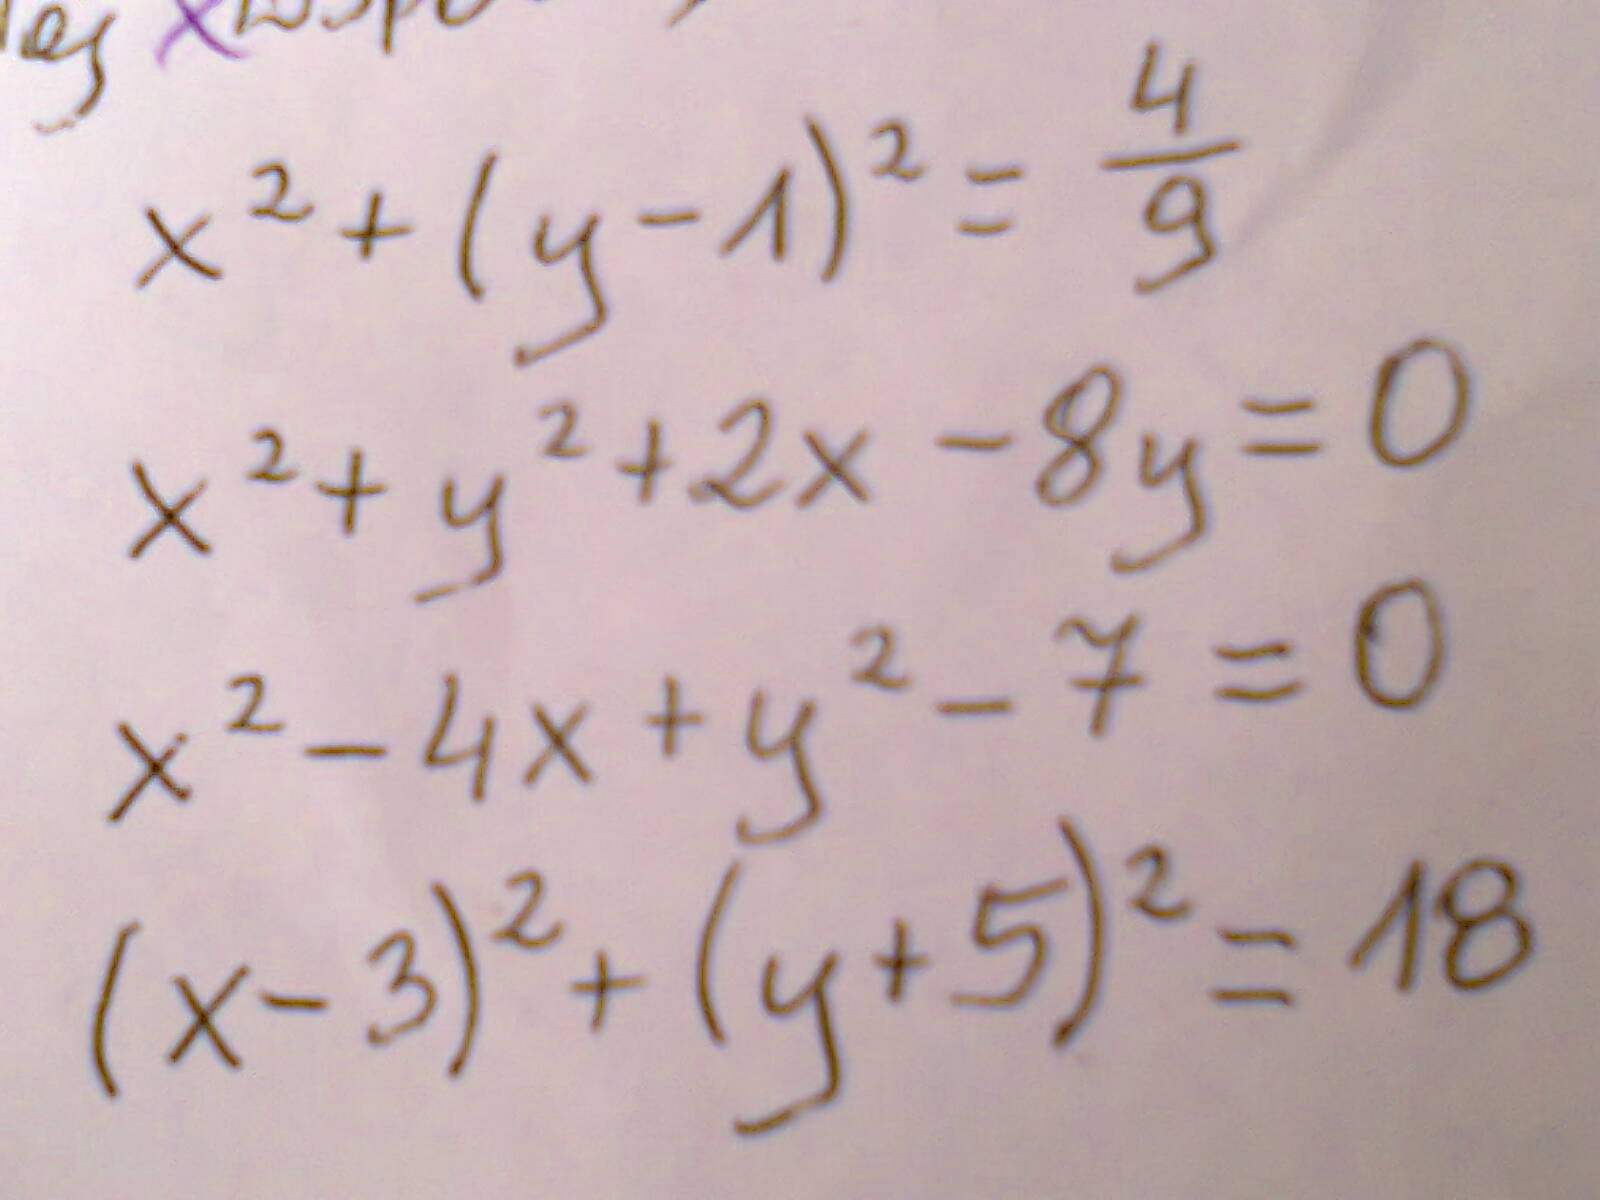 x² + (y - 1)² = 4/9
x² + y² + 2x - 8y = 0
x² - 4x + y² - 7 = 0
(x - 3)² + (y + 5)² = 18